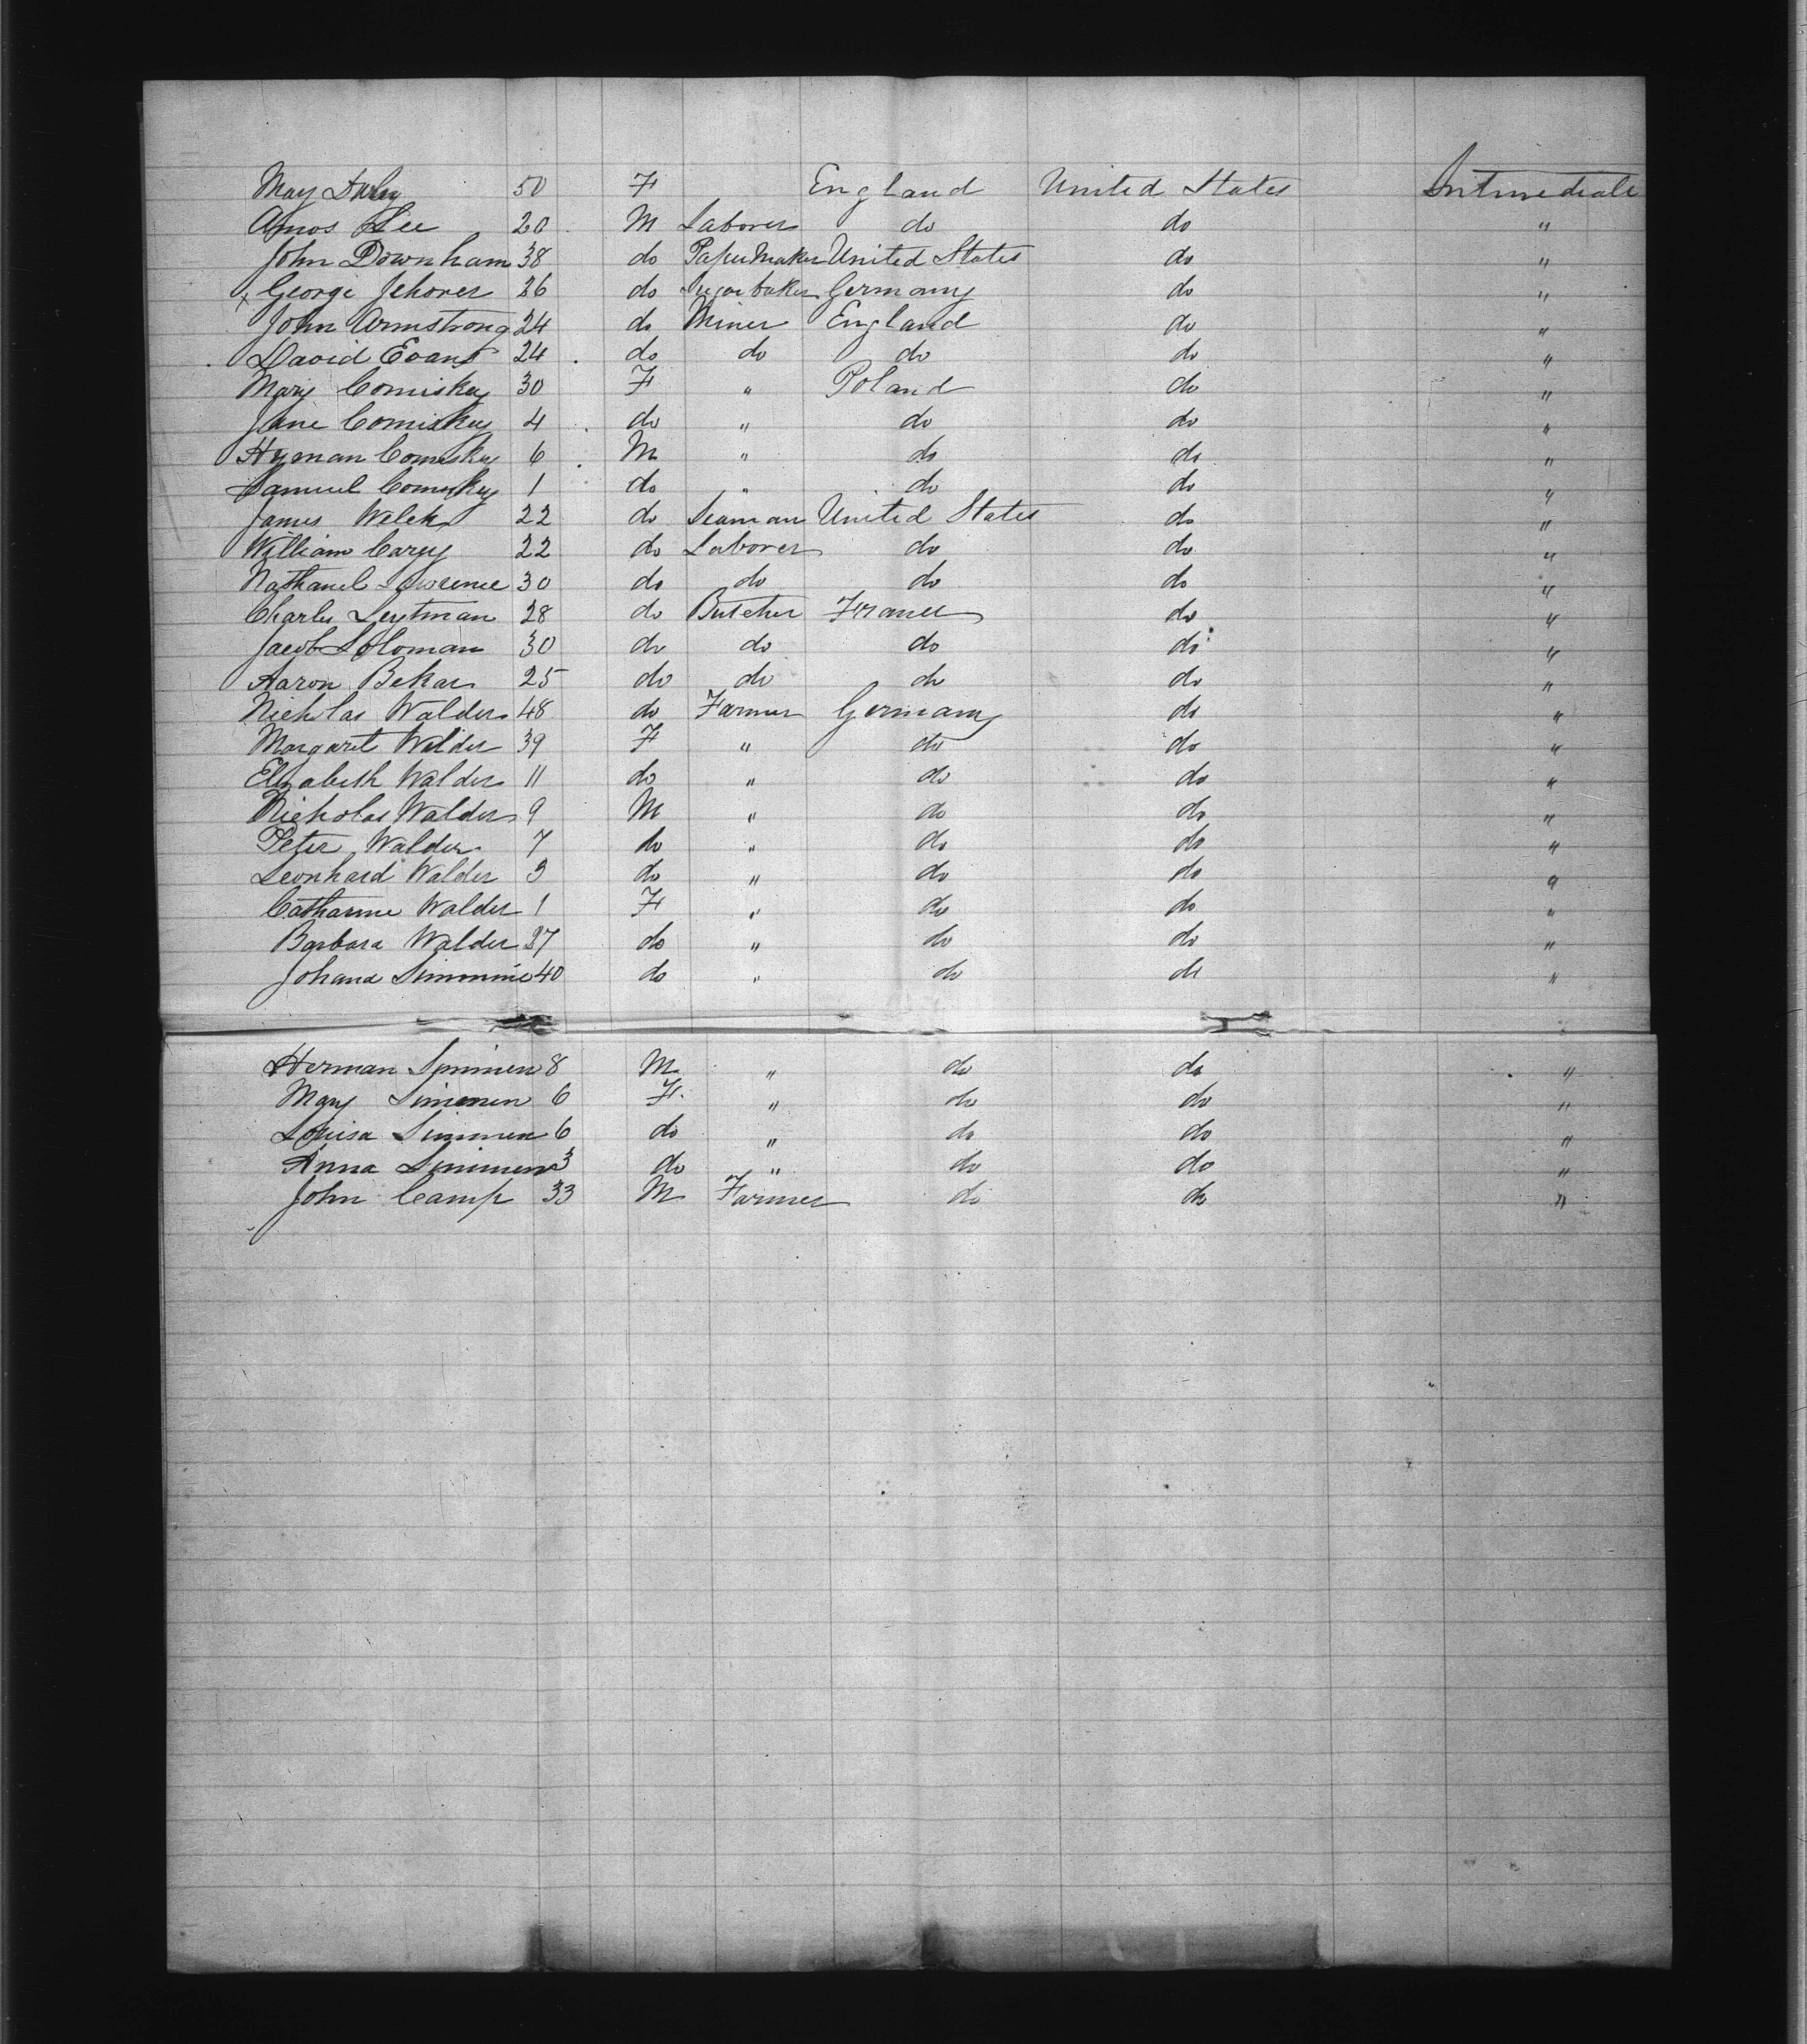 May Daley 50 F England United States Intmediate
Amos Lee 20 M Laborer do do "
John Downham 38 do Paper Maker United States do "
x George Jehorer 26 do Sugar baker Germany do "
John Armstrong 24 do Miner England do "
David Evans 24 do do do do "
Mary Comiskey 30 F " Poland do "
Jane Comiskey 4 do " do do "
Hyman Comiskey 6 M " do do "
Samuel Comiskey 1 do " do do "
James Welch 22 do Seaman United States do "
William Carey 22 do Laborer do do "
Nathaniel Lawrence 30 do do do do "
Charles Leytman 28 do Butcher France do "
Jacob Soloman 30 do do do do "
Aaron Bekar 25 do do do do "
Nicholas Walder 48 do Farmer Germany do "
Margaret Walder 39 F " do do "
Elizabeth Walder 11 do " do do "
Nicholas Walder 9 M " do do "
Peter Walder 7 do " do do "
Leonhard Walder 3 do " do do "
Catharine Walder 1 F " do do "
Barbara Walder 27 do " do do "
Johana Simmine 40 do " do do "
Herman Simmen 8 M " do do "
Mary Simmen 6 F " do do "
Louisa Simmen 6 do " do do "
Anna Simmen 3 do " do do "
John Camp 33 M Farmer do do "